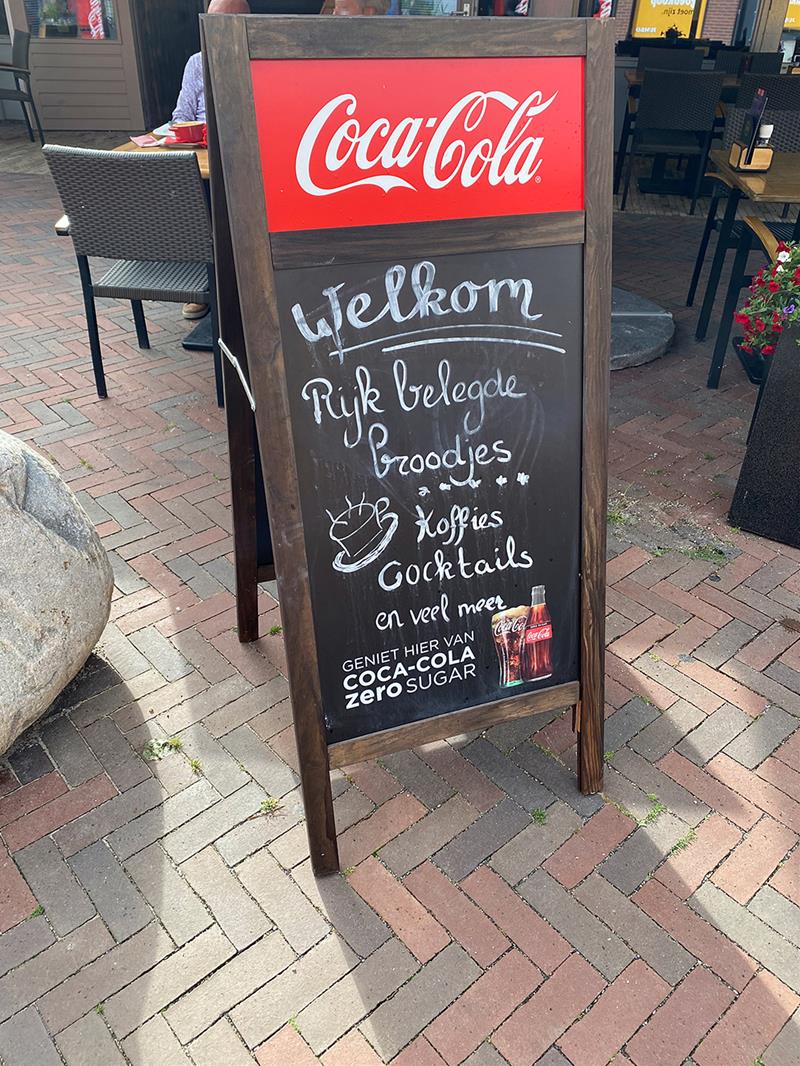 Coca-Cola
Welkom
Rijk belegde
broodjes
Koffies
Cocktails
en veel meer
GENIET HIER VAN
COCA-COLA
zero SUGAR
Coca-Cola
Coca-Cola